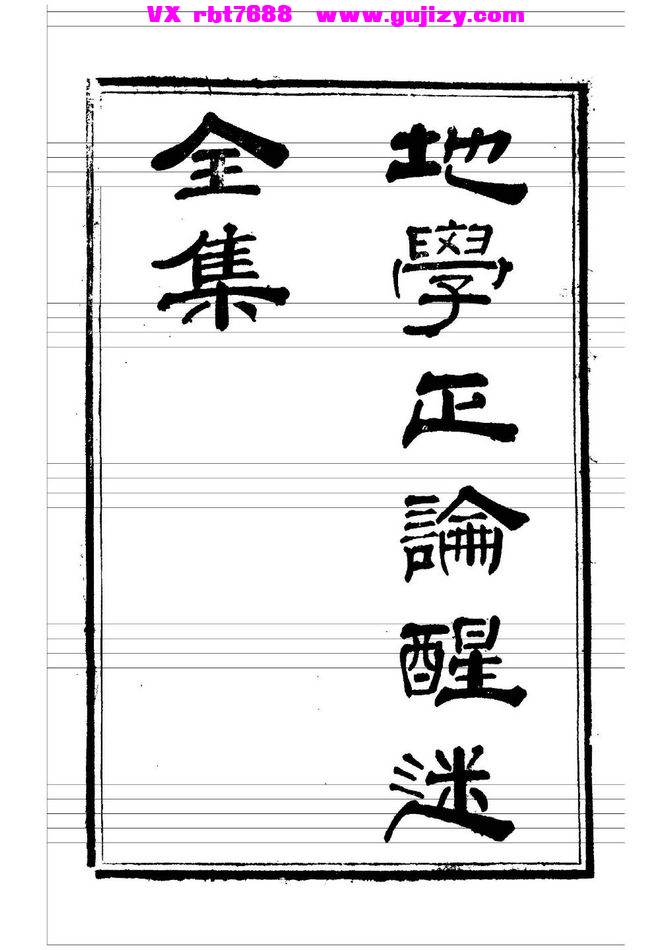 VX rbt7688 www.gujizy.com
地學正論醒迷
全集